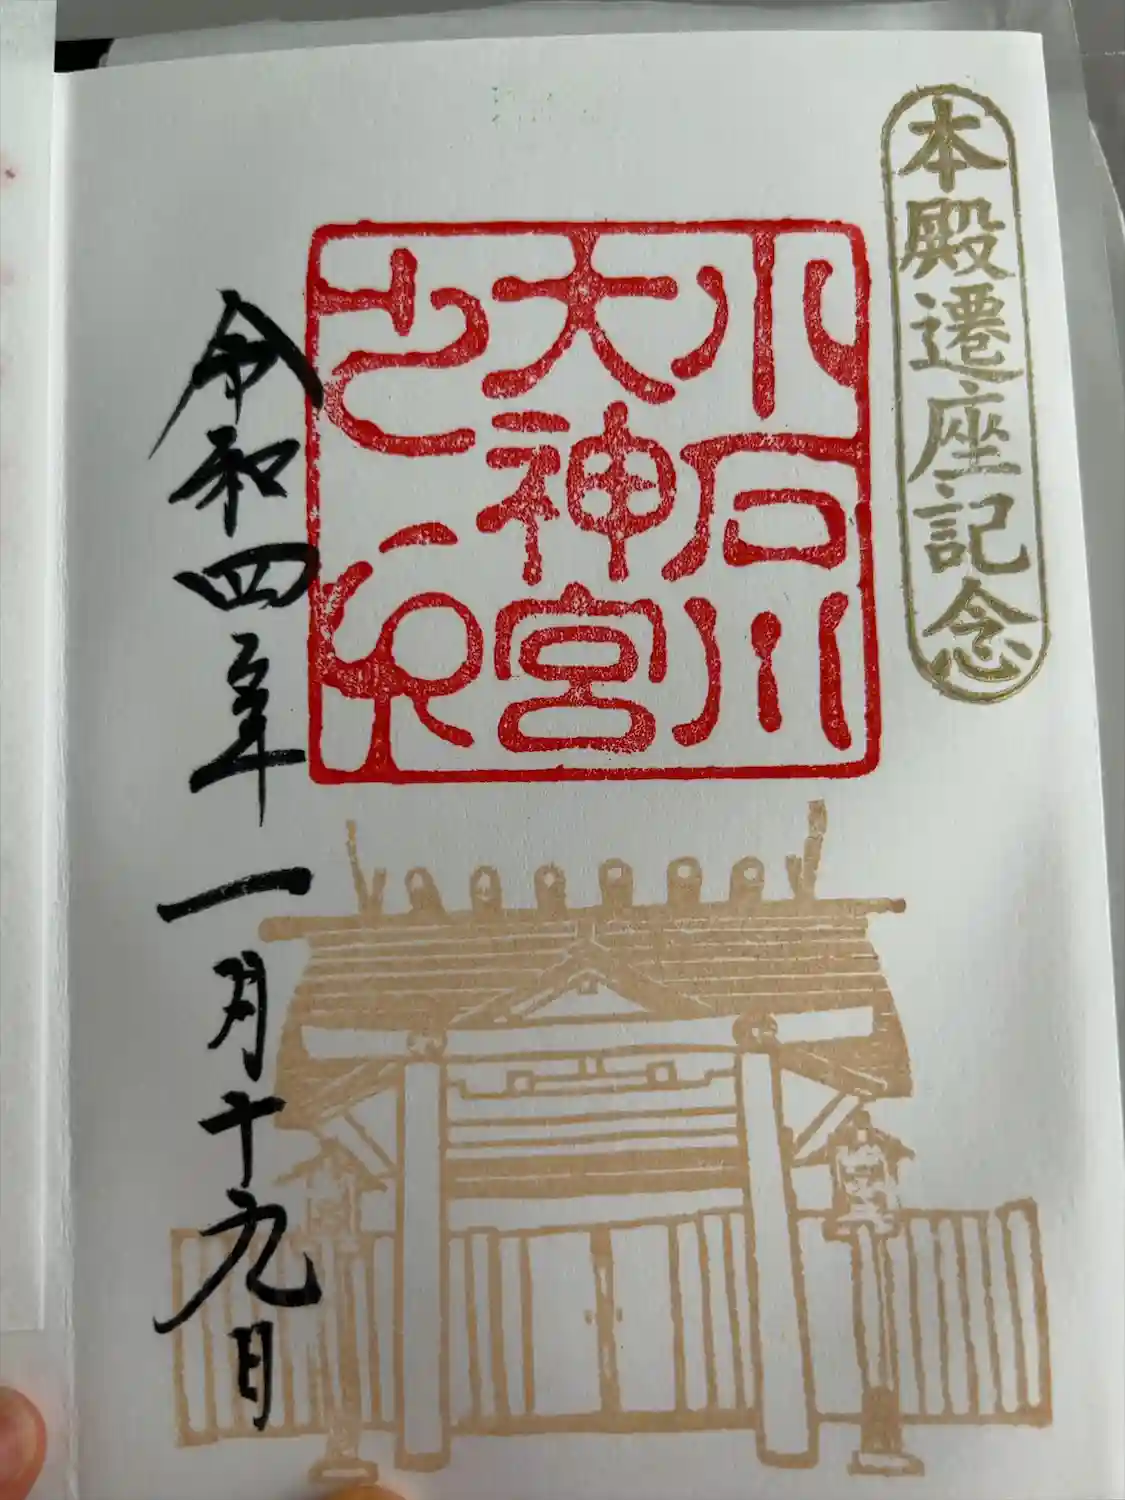 本殿遷座記念
小石川
大神宮
之印
令和四年一月十九日